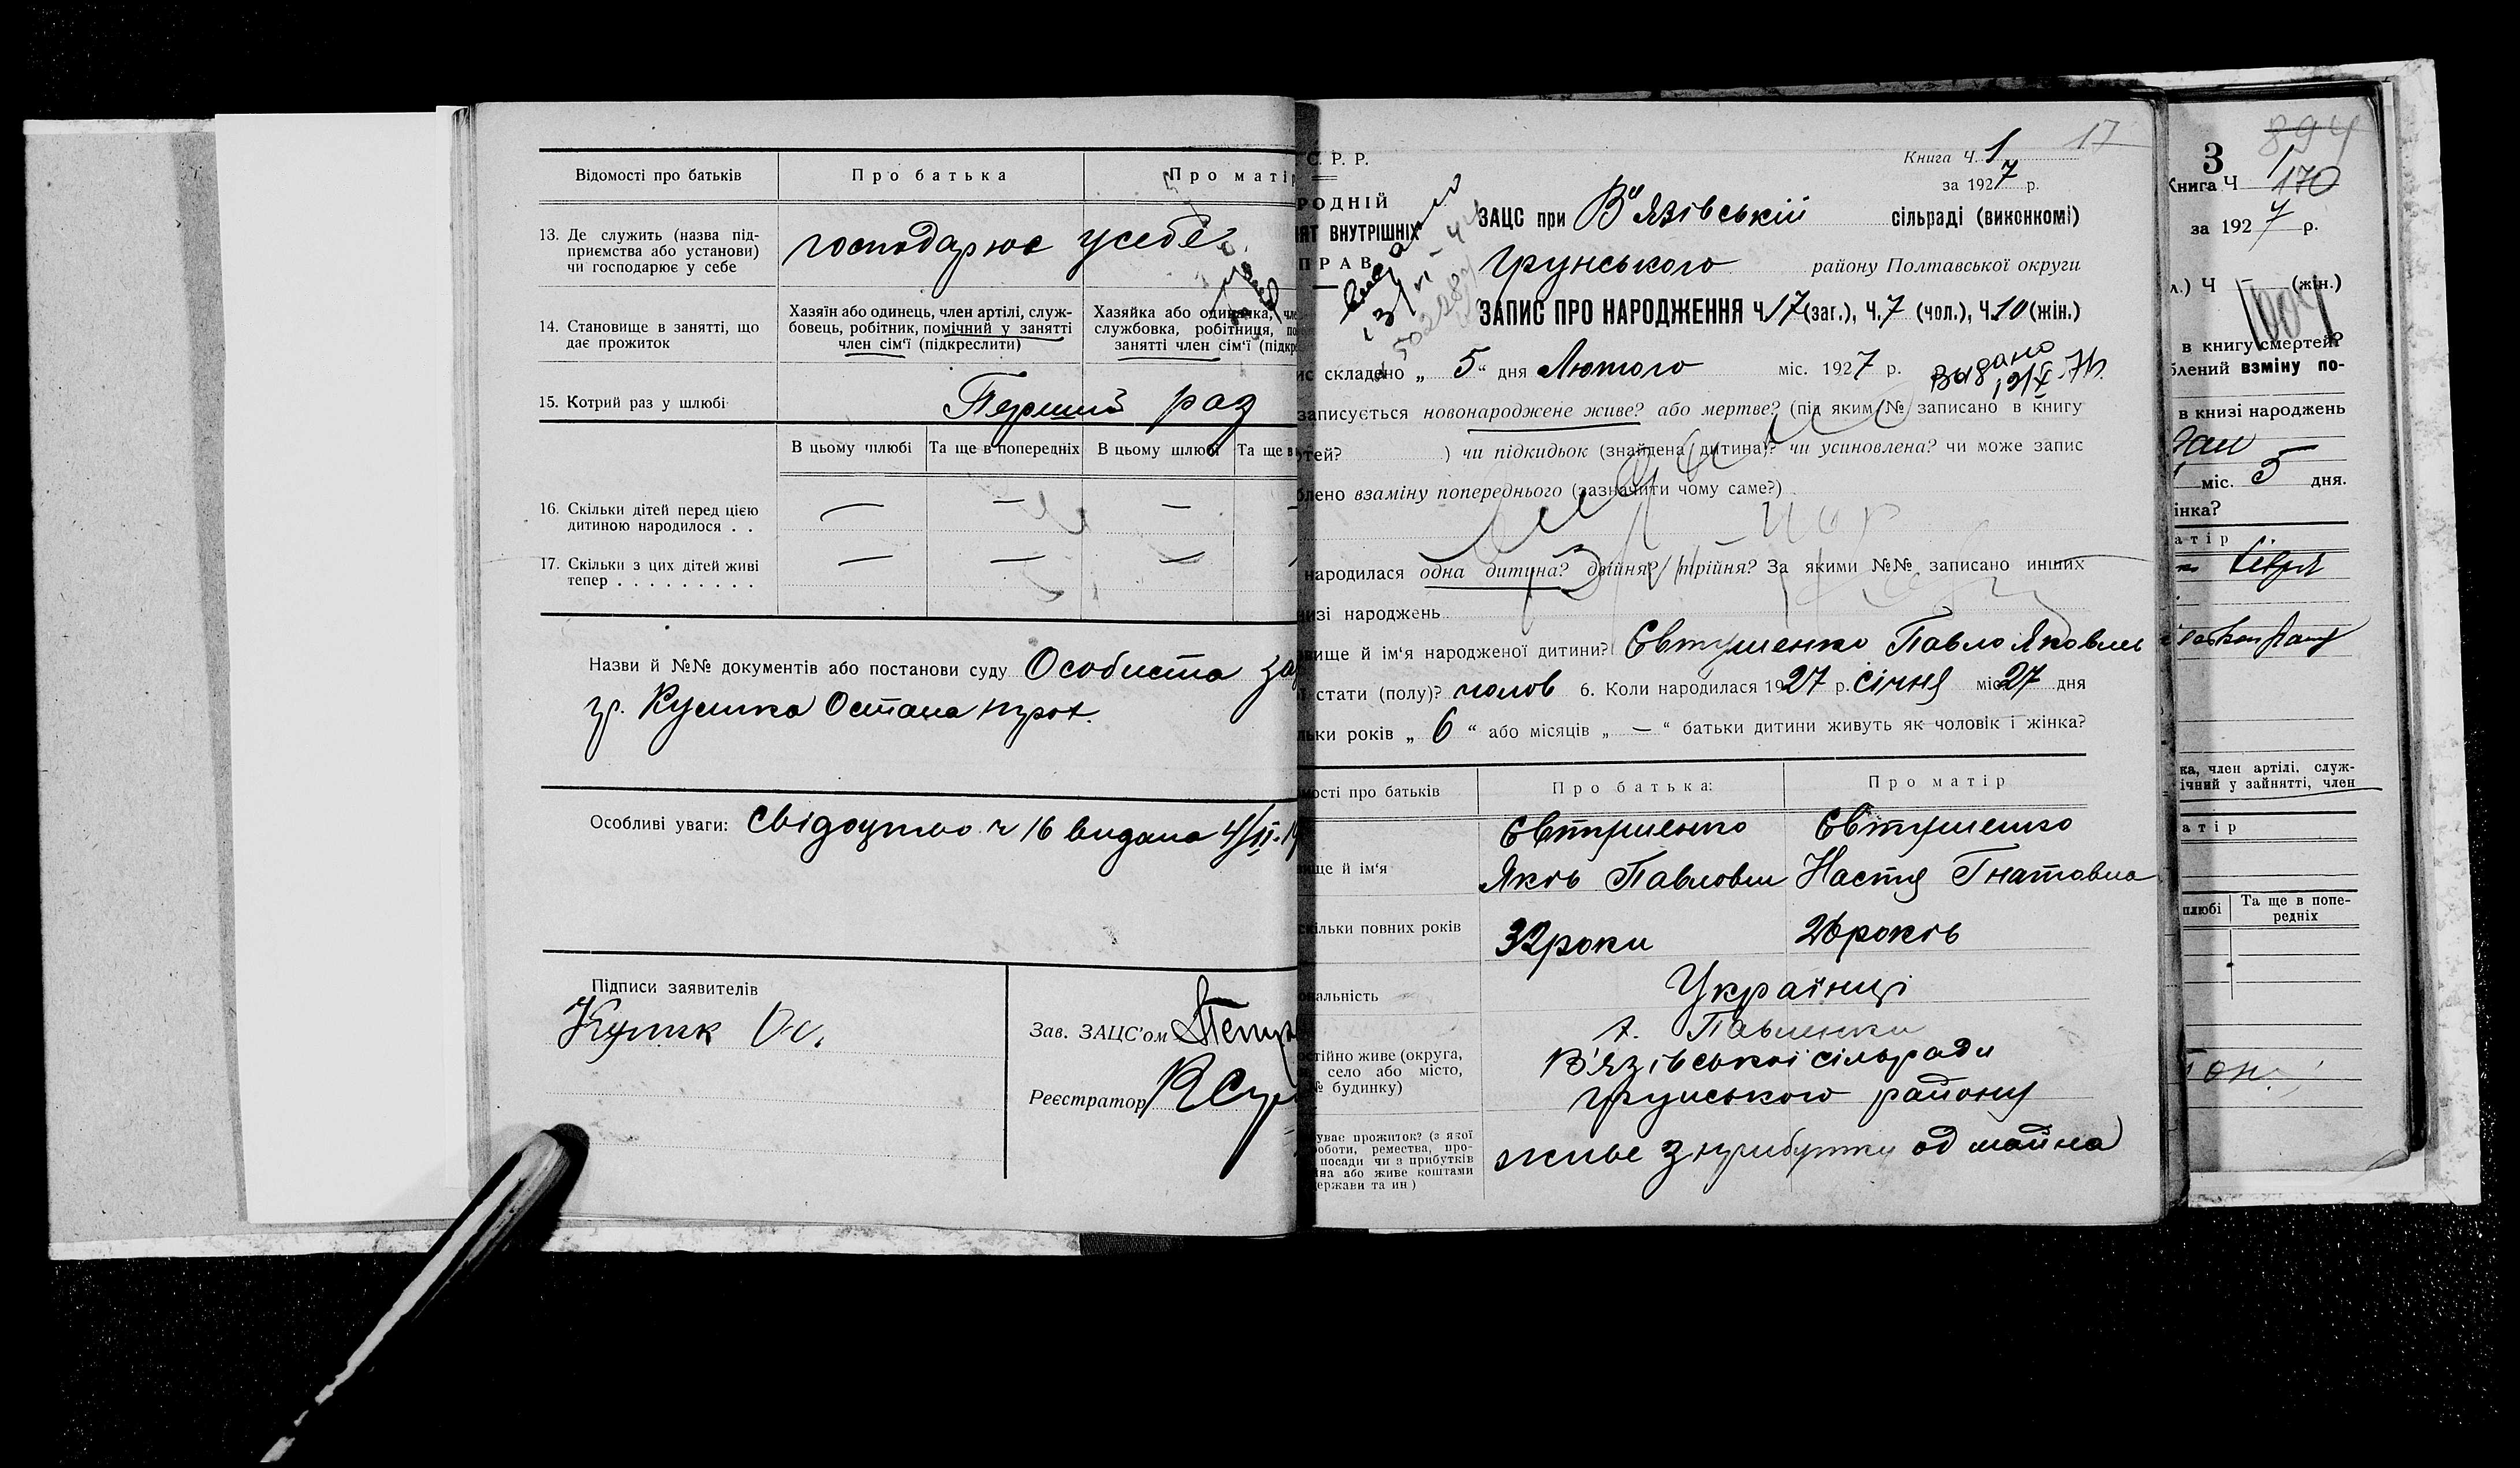 Відомості про батьків
Про батька
Про матір
13. Де служить (назва під-
приємства або установи)
чи господарює у себе
господарює усебе
14. Становище в занятті, що
дає прожиток
Хазяїн або одинець, член артілі, служ-
бовець, робітник, помічний у занятті
член сім'ї (підкреслити)
Хазяйка або одиначка, чле
службовка, робітниця, по
занятті член сім'ї (підкр
15. Котрий раз у шлюбі
Перший раз
В цьому шлюбі
Та ще в попередніх
В цьому шлюбі
Та ще в
16. Скільки дітей перед цією
дитиною народилося . .
— — —
17. Скільки з цих дітей живі
тепер . . . . . . . . .
— — —
Назви й №№ документів або постанови суду Особиста за
гр. Кулика Остапа
Особливі уваги: Свідоцтво ч 16 видана 4/II-19
Підписи заявителів
Кулик Ос.
Зав. ЗАЦС'ом
Реєстратор
С. Р. Р.
РОДНІЙ
ЯТ ВНУТРІШНІХ
ПРАВ
17
Книга Ч. 1
за 1927 р.
ЗАЦС при В'язівській сільраді (виконкомі)
Грунського району Полтавської округи
ЗАПИС ПРО НАРОДЖЕННЯ Ч. 17 (заг.), Ч. 7 (чол.), Ч. 10 (жін.)
ис складено „ 5 “ дня Лютого міс. 1927 р.
Видано
записується новонароджене живе? або мертве? (під яким № записано в книгу
ртей? ) чи підкидьок (знайдена дитина)? чи усиновлена? чи може запис
блено взаміну попереднього (зазначити чому саме?)
народилася одна дитина? двійня? трійня? За якими №№ записано инших
изі народжень
вище й ім'я народженої дитини? Євтушенко Павло Яковлев
стати (полу)? чолов 6. Коли народилася 1927 р. січня міс 27 дня
льки років „ 6 “ або місяців „ — “ батьки дитини живуть як чоловік і жінка?
мості про батьків
Про батька:
Про матір
вище й ім'я
Євтушенко
Яків Павлович
Євтушенко
Настя Гнатовна
скільки повних років
32 роки
26 років
ональність
Українці
остійно живе (округа,
село або місто,
№ будинку)
х. Павленки
В'язівської сільради
Грунського району
уває прожиток? (з якої
роботи, ремества, про-
посади чи з прибутків
йна або живе коштами
держави та ин.)
живе з прибутку од майна
894
3
Книга Ч 1
170
за 1927 р.
л.) Ч (жін.)
в книгу смертей?
блений взміну по-
в книзі народжень
міс. 5 дня.
інка?
атір
ка, член артілі, служ-
ічний у зайнятті, член
атір
шлюбі
Та ще в попе-
редніх